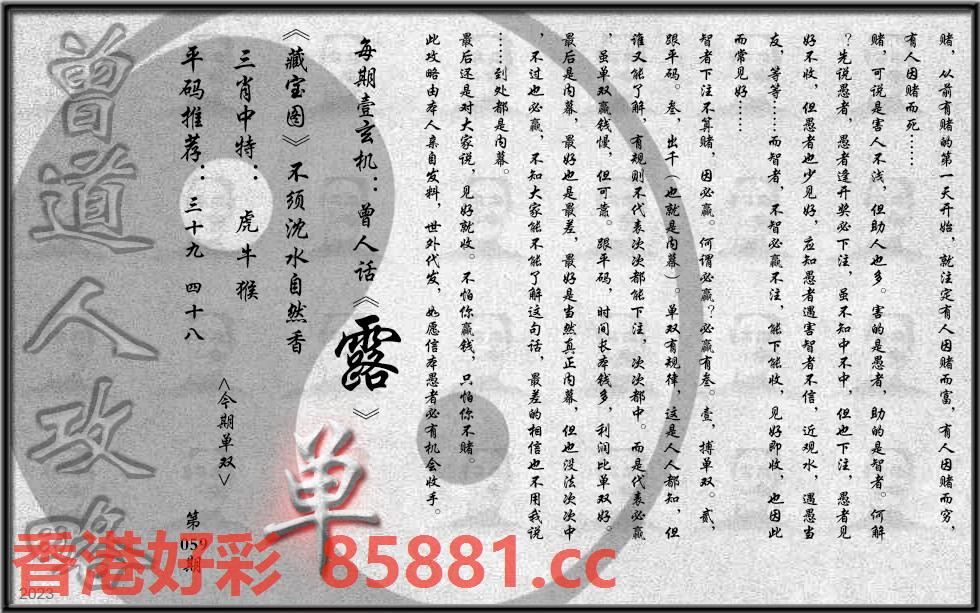 赌，从前有赌的第一天开始，就注定有人因赌而富，有人因赌而穷，
有人因赌而死……
赌，可说是害人不浅，但助人也多。害的是愚者，助的是智者。何解
？先说愚者，愚者逢开奖必下注，虽不知中不中，但也下注，愚者见
好不收，但愚者也少见好，应知愚者遇害智者不信，近观水，遇愚当
友，等等……而智者，不智必赢不注，能下能收，见好即收，也因此
而常见好……
智者下注不算赌，因必赢。何谓必赢？必赢有叁。壹，搏单双。贰，
跟平码。叁，出千（也就是内幕）。单双有规律，这是人人都知，但
谁又能了解，有规则不代表次次都能下注，次次都中。而是代表必赢
，虽单双赢钱慢，但可靠。跟平码，时间长本钱多，利润比单双好。
最后是内幕，最好也是最差，最好是当然真正内幕，但也没法次次中
，不过也必赢，不知大家能不能了解这句话，最差的相信也不用我说
……到处都是内幕。
最后还是对大家说，见好就收。不怕你赢钱，只怕你不赌。
此攻略由本人亲自发料，世外代发，如愿信本愚者必有机会收手。
每期壹玄机：曾人话《露》
《藏宝图》不须沈水自然香
三肖中特：虎牛猴
平码推荐：三十九 四十八
<今期单双>
单
第059期
曾道人攻略
香港好彩 85881.cc
2023